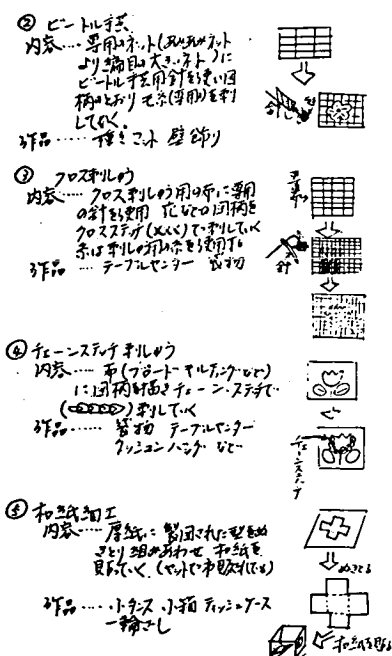 ② ビートル手芸
内容‥‥専用のネット(あみあみネット
より編目の大きいネット)に
ビートル手芸用針を使い図
柄のとおり毛糸(専用)を刺
してゆく。
作品‥‥‥マット 壁飾り
針
③ クロス刺しゅう
内容‥‥クロス刺しゅう用の布に専用
の針を使用 花などの図柄を
クロスステッチ(×××)で刺していく
糸は刺しゅう用の糸を使用する
作品‥‥テーブルセンター 袋物
針
④ チェーンステッチ刺しゅう
内容‥‥布(ブロード
に図柄を描きチェーンステッチで
刺していく
作品‥‥‥袋物 テーブルセンター
クッション バッグ など
チェーンステッチ
⑤ 和紙細工
内容‥‥厚紙に製図された型をぬ
きとり組みあわせ 和紙を
貼っていく。(セットで市販されている)
ぬきとる
作品‥‥小タンス 小箱 ティッシュケース
一輪ざし
和紙を貼る